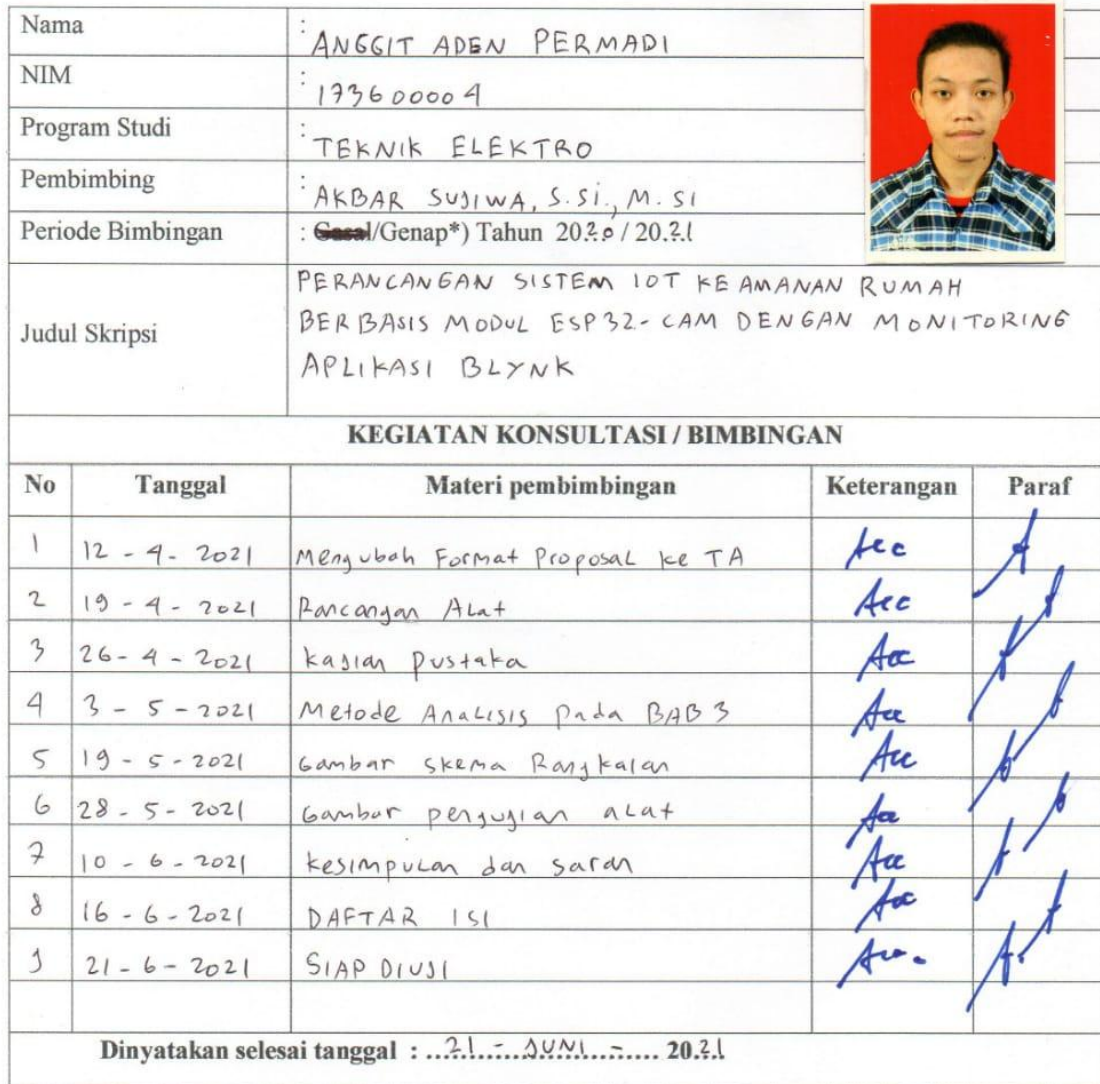 Nama : ANGGIT ADEN PERMADI
NIM : 173600004
Program Studi : TEKNIK ELEKTRO
Pembimbing : AKBAR SUJIWA, S.Si., M.Si
Periode Bimbingan : Gasal/Genap*) Tahun 2020 / 2021
Judul Skripsi
PERANCANGAN SISTEM IOT KEAMANAN RUMAH
BERBASIS MODUL ESP32-CAM DENGAN MONITORING
APLIKASI BLYNK
KEGIATAN KONSULTASI / BIMBINGAN
No Tanggal Materi pembimbingan Keterangan Paraf
1 12 - 4 - 2021 Mengubah Format Proposal ke TA Acc
2 19 - 4 - 2021 Rancangan Alat Acc
3 26 - 4 - 2021 Kajian Pustaka Acc
4 3 - 5 - 2021 Metode Analisis pada BAB 3 Acc
5 19 - 5 - 2021 Gambar skema Rangkaian Acc
6 28 - 5 - 2021 Gambar pengujian alat Acc
7 10 - 6 - 2021 kesimpulan dan saran Acc
8 16 - 6 - 2021 DAFTAR ISI Acc
9 21 - 6 - 2021 SIAP DIUJI Acc.
Dinyatakan selesai tanggal : ...21...-...JUNI...-... 20.21